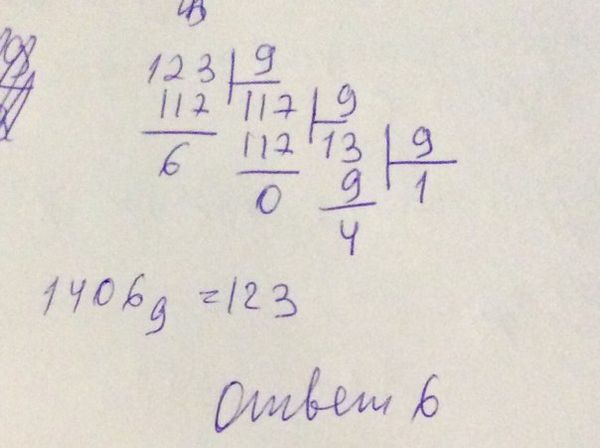 123 9
117 117 9
6 117 13 9
0 9 1
4
1406₉ = 123
Ответ 6